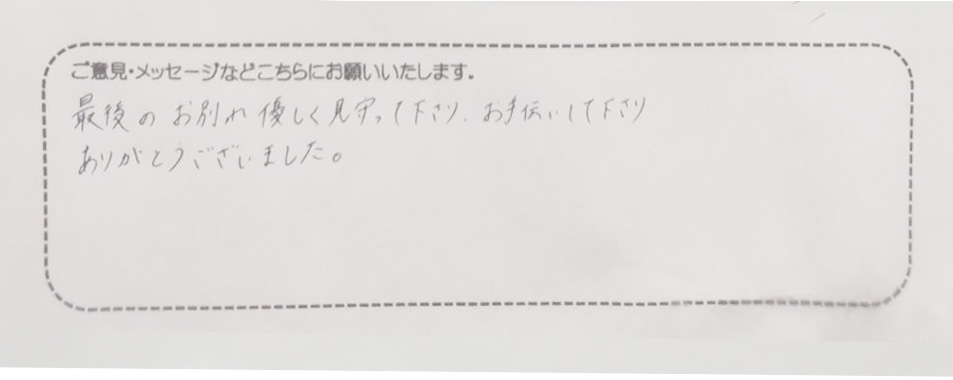 ご意見・メッセージなどこちらにお願いいたします。
最後のお別れ優しく見守って下さり、お手伝いして下さり
ありがとうございました。